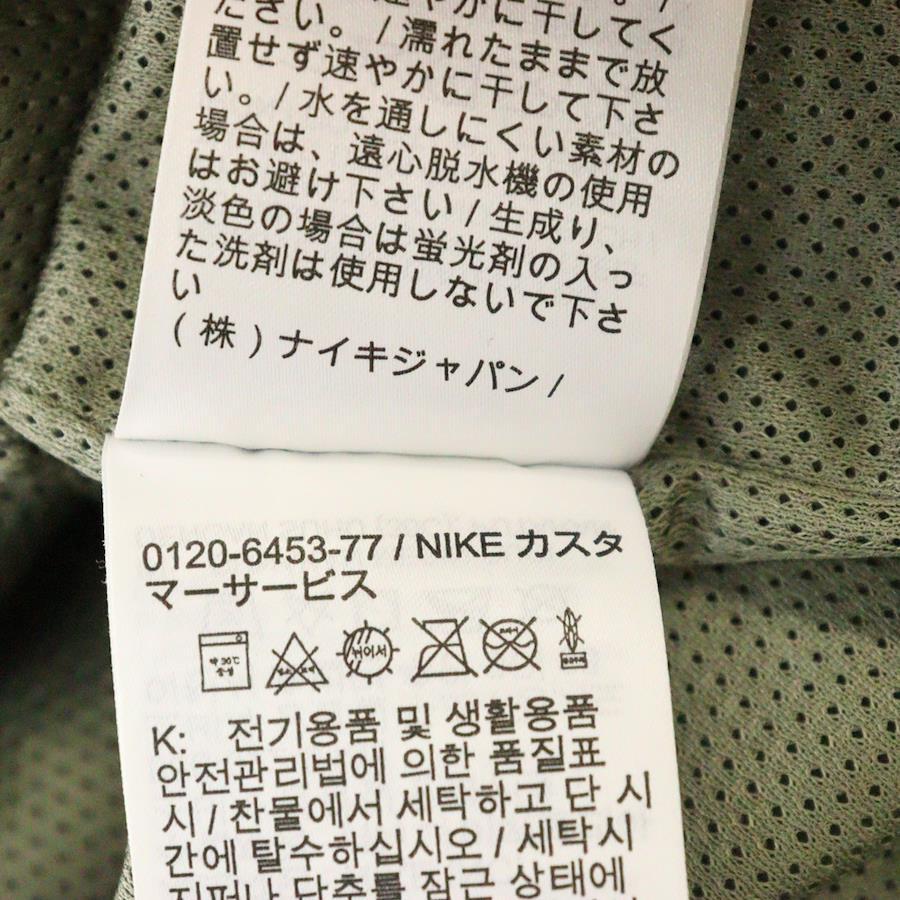 やかに干してく
ださい。/濡れたままで放
置せず速やかに干して下さ
い。/水を通しにくい素材の
場合は、遠心脱水機の使用
はお避け下さい/生成り、
淡色の場合は蛍光剤の入っ
た洗剤は使用しないで下さ
い
(株)ナイキジャパン/
0120-6453-77 / NIKE カスタ
マーサービス
약 30℃ 중성
뉘어서
K: 전기용품 및 생활용품
안전관리법에 의한 품질표
시 / 찬물에서 세탁하고 단 시
간에 탈수하십시오 / 세탁시
지퍼나 단추를 잠근 상태에